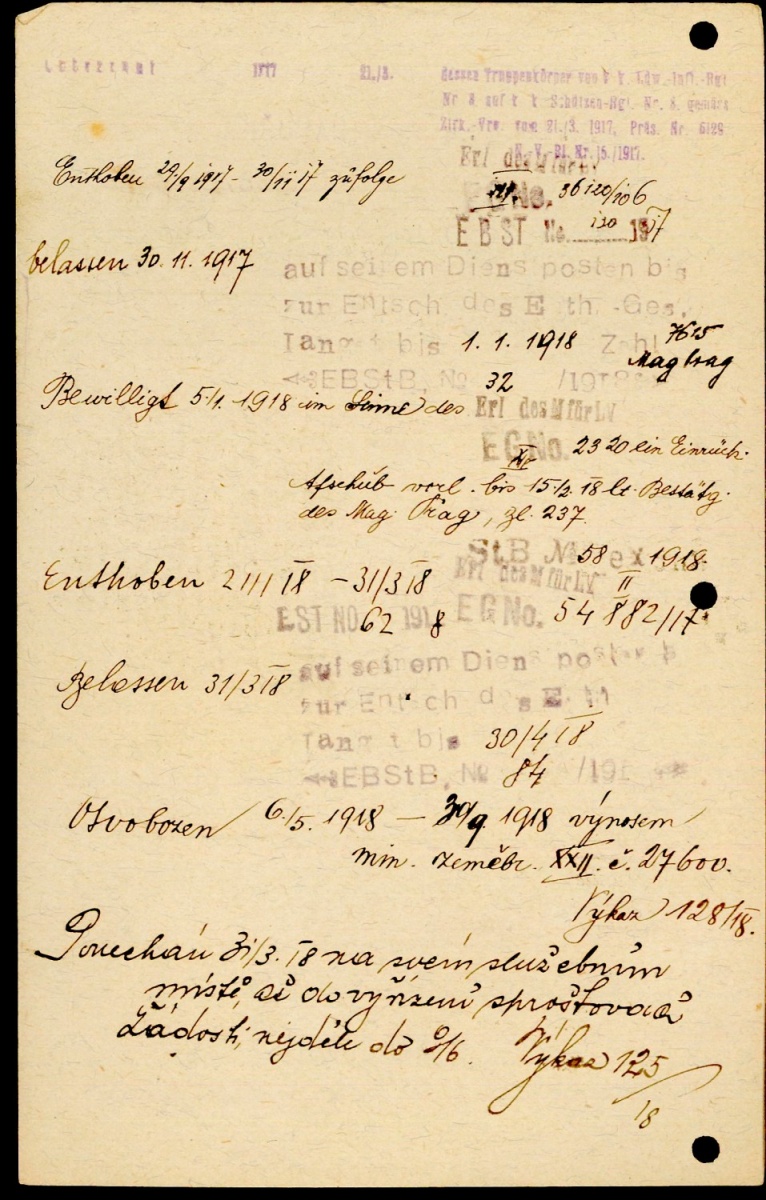 1917 21./3. dessen Truppenkörper von k. k. Ldw.-Inft.-Rgt
Nr 8 auf k. k. Schützen-Rgt. Nr. 8. gemäss
Zirk.-Vrv. vom 21./3. 1917, Präs. Nr. 6129
N.-V.-Bl. Nr. 15./1917.
Erl des M für LV
Enthoben 29/9 1917 - 30/11 17 zufolge
EGNo. 36120/106
EBST No. 130 1917
belassen 30. 11. 1917
auf seinem Dienstposten bis
zur Entsch. des Enth.-Ges.
längst bis 1. 1. 1918 Zahl 7615
Mag Prag
EBStB. No 32 /1918
Bewilligt 5/1. 1918 im Sinne des Erl des M für LV
EGNo. XIV 2320 ein Einrück.
Afschub vorl. bis 15/2. 18 lt. Bestätg.
des Mag. Prag, zl. 237.
StB No 58 ex 1918.
Erl des M für LV
Enthoben 21/1 18 - 31/3 18
EST NO. 62 1918 EGNo. 54882/17.
Belassen 31/3 18
auf seinem Dienstposten bis
zur Entsch des Enth
längst bis 30/4 18
EBStB. No 84 /191
Osvobozen 6./5. 1918 — 30/9. 1918 výnosem
min. zeměbr. XXII. č. 27600.
Výkaz 128/18.
Ponechán 31/3. 18 na svém služebním
místě, až do vyřízení sprošťovací
žádosti, nejdéle do 9/6. Výkaz 125/18